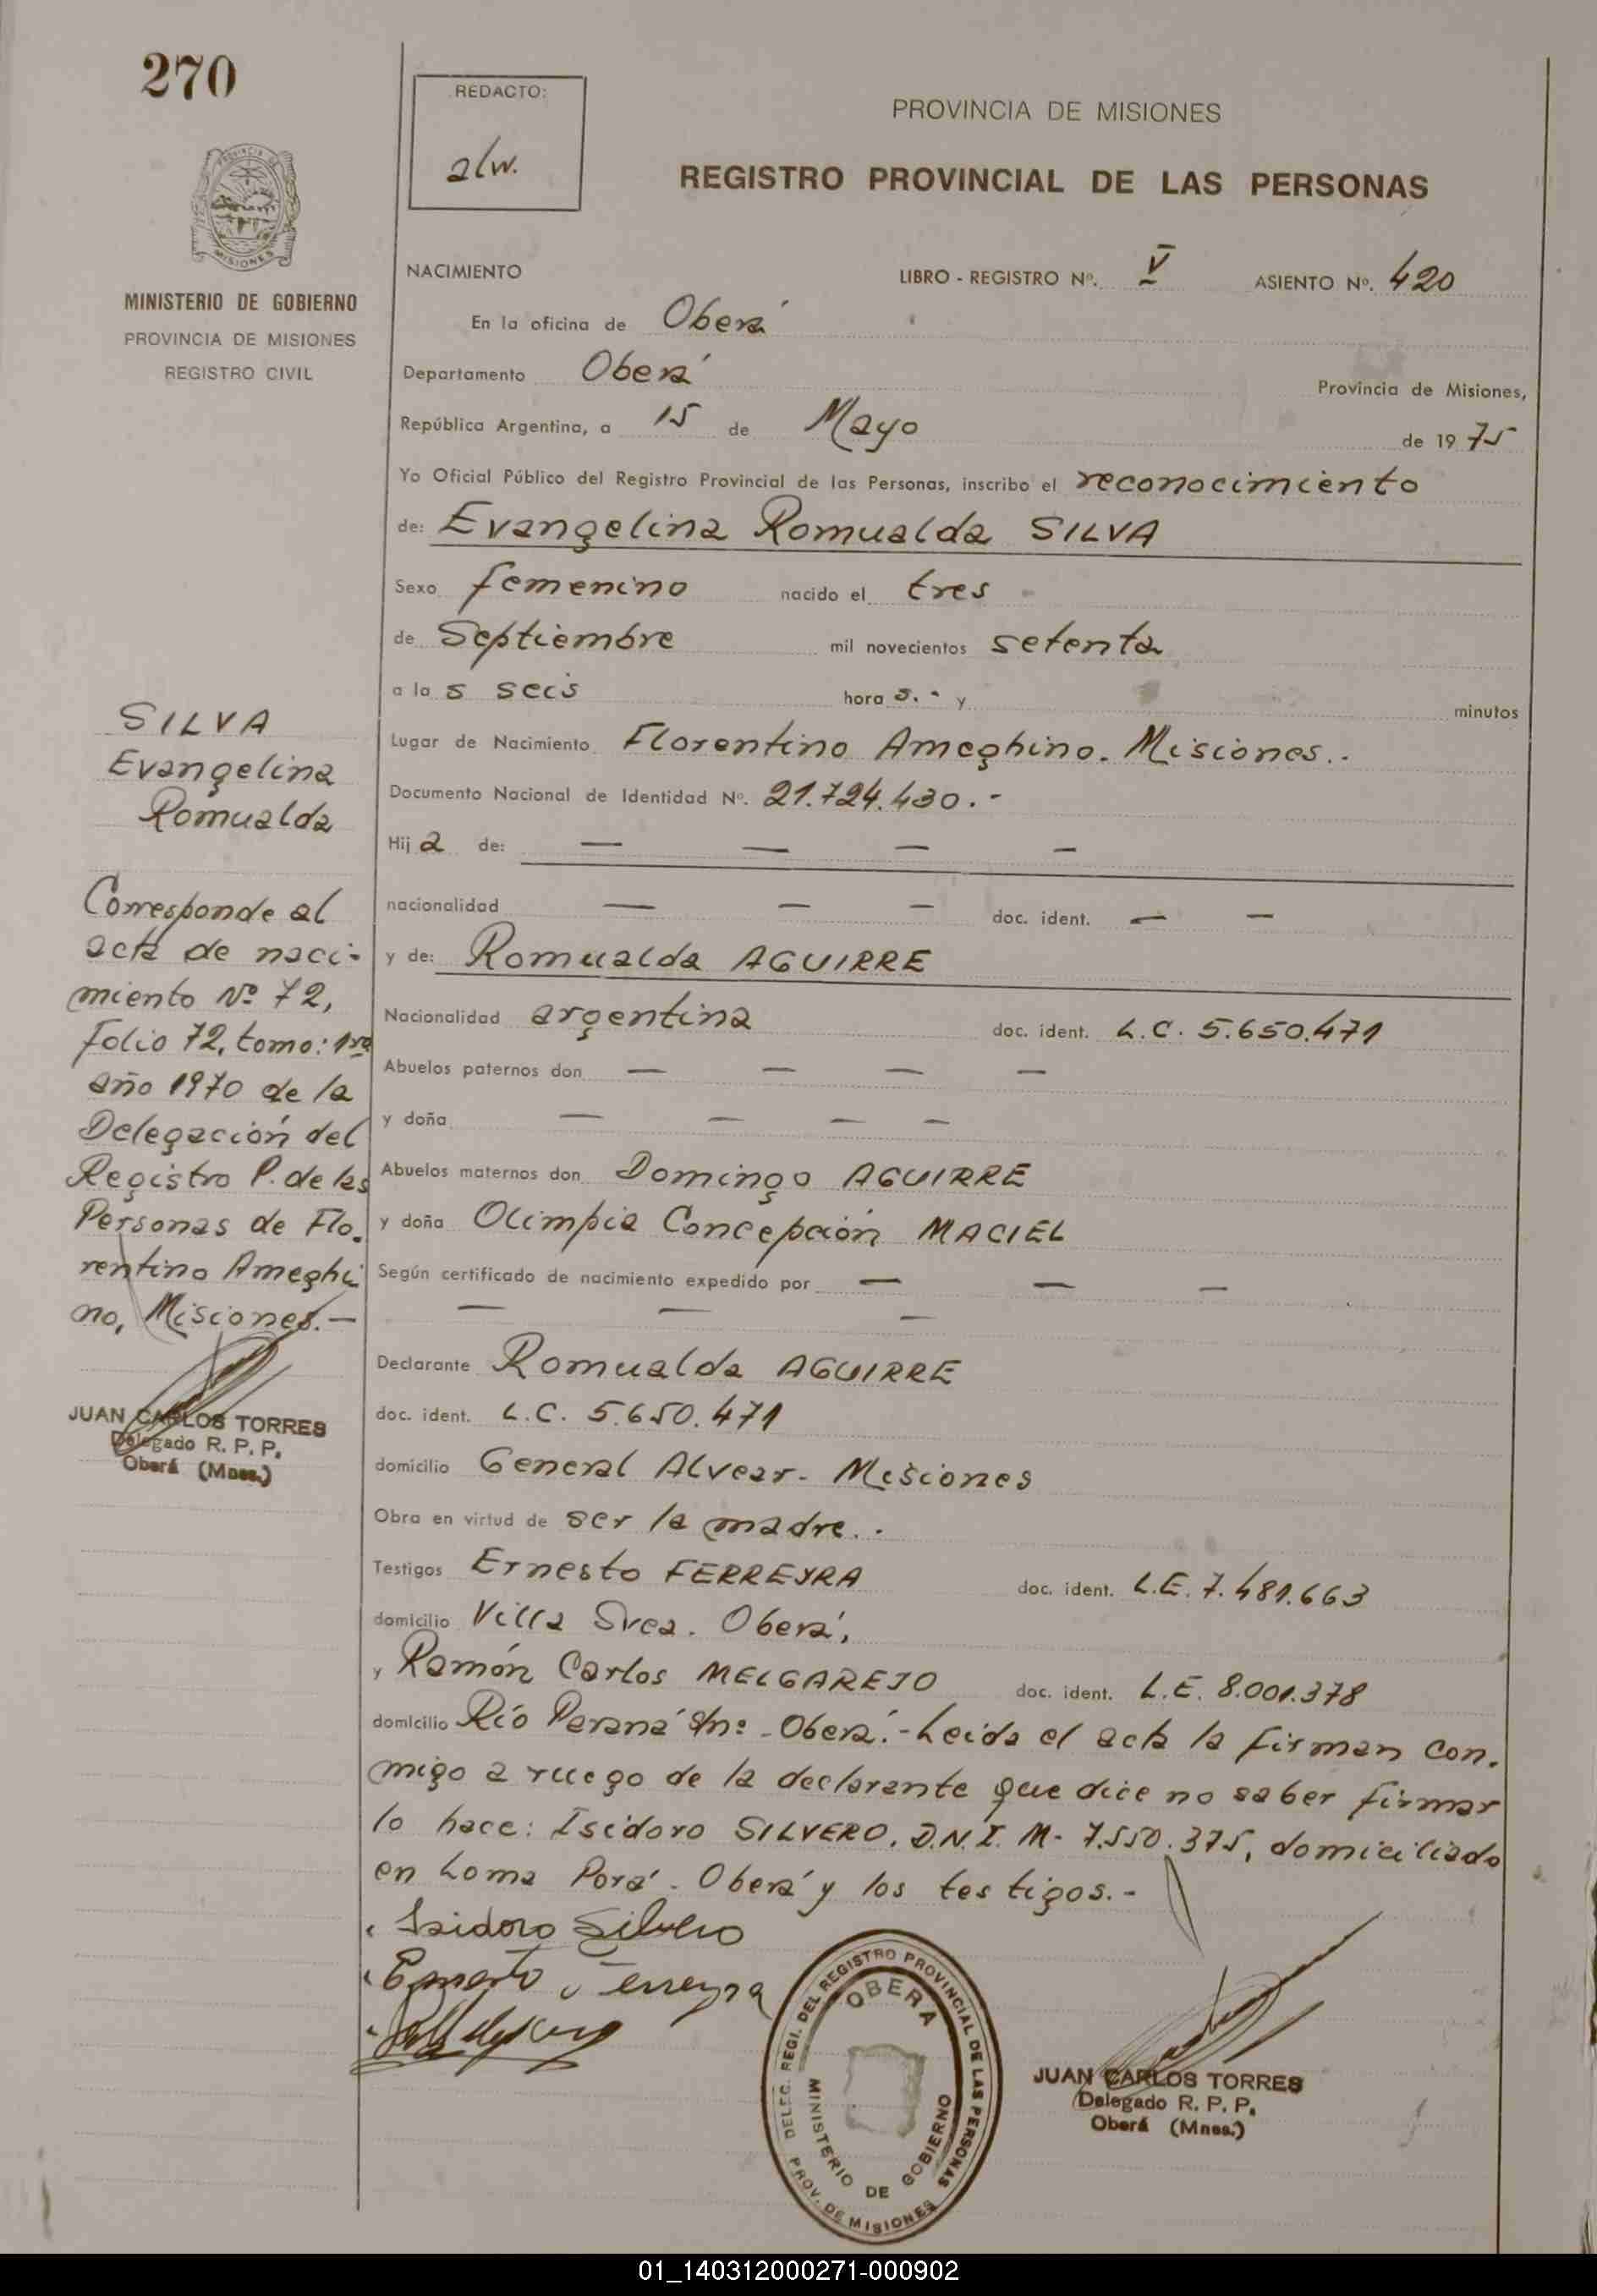 270
REDACTO:
alw.
PROVINCIA DE MISIONES
REGISTRO PROVINCIAL DE LAS PERSONAS
PROVINCIA DE
MISIONES
MINISTERIO DE GOBIERNO
PROVINCIA DE MISIONES
REGISTRO CIVIL
NACIMIENTO LIBRO - REGISTRO Nº. V ASIENTO Nº. 420
En la oficina de Oberá
Departamento Oberá Provincia de Misiones,
República Argentina, a 15 de Mayo de 1975
Yo Oficial Público del Registro Provincial de las Personas, inscribo el reconocimiento
de: Evangelina Romualda SILVA
Sexo femenino nacido el tres
de Septiembre mil novecientos setenta
a la s seis hora s.- y minutos
Lugar de Nacimiento Florentino Ameghino. Misiones.-
Documento Nacional de Identidad Nº. 21.724.430.-
Hija de: — — — —
nacionalidad — — — doc. ident. — —
y de: Romualda AGUIRRE
Nacionalidad argentina doc. ident. L.C. 5.650.471
Abuelos paternos don — — — —
y doña — — — —
Abuelos maternos don Domingo AGUIRRE
y doña Olimpia Concepción MACIEL
Según certificado de nacimiento expedido por — — —
— — —
Declarante Romualda AGUIRRE
doc. ident. L.C. 5.650.471
domicilio General Alvear - Misiones
Obra en virtud de ser la madre.-
Testigos Ernesto FERREYRA doc. ident. L.E. 7.481.663
domicilio Villa Svea. Oberá,
y Ramón Carlos MELGAREJO doc. ident. L.E. 8.001.378
domicilio Río Paraná s/nº - Oberá.- Leída el acta la firman con.
migo a ruego de la declarante que dice no saber firmar
lo hace: Isidoro SILVERO. D.N.I. M- 7.550.375, domiciliado
en Loma Porá - Oberá y los testigos.-
Isidoro Silvero
Ernesto Ferreyra
SILVA
Evangelina
Romualda
Corresponde al
acta de naci-
miento Nº 72,
folio 72, tomo: 1ro
año 1970 de la
Delegación del
Registro P. de las
Personas de Flo.
rentino Ameghi
no, Misiones.—
JUAN CARLOS TORRES
Delegado R. P. P.
Oberá (Mnes.)
DELEG. REGI. DEL REGISTRO PROVINCIAL DE LAS PERSONAS
OBERA
MINISTERIO DE GOBIERNO
PROV. DE MISIONES
JUAN CARLOS TORRES
Delegado R. P. P.
Oberá (Mnes.)
01_140312000271-000902